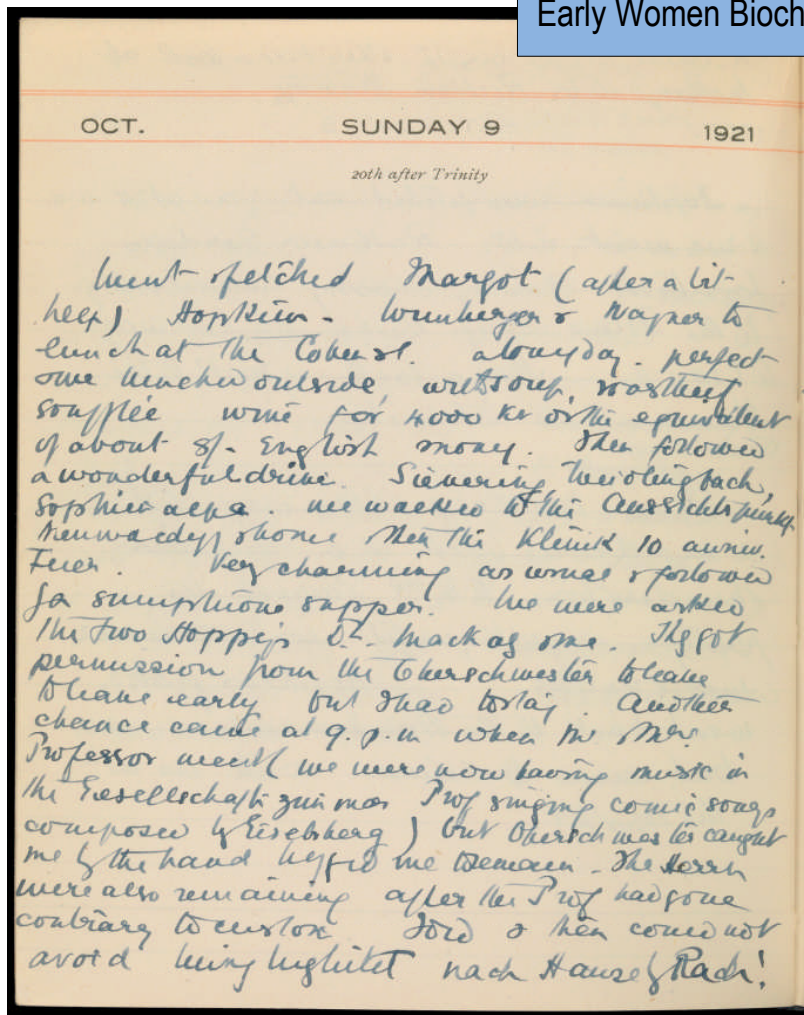 Early Women Bioch
OCT. SUNDAY 9 1921
20th after Trinity
Went & fetched Margot (after a bit
help) Hopkins - & to
lunch at the Cobenzl. a lovely day. perfect
& we lunched outside with soup, roastbeef
soufflée wine for 4000 Kr or the equivalent
of about 8/- English money. Then followed
a wonderful drive. Sievering, Weidlingbach,
Sophienalpe. we walked to the Aussichtspunkt
& home then the Klinik 10
Feier. Very charming as usual & followed
by a sumptuous supper. We were asked
the two Hoppys Dr. Mackay & me. They got
permission from the Oberschwester to leave
to leave early but I had to stay. Another
chance came at 9. p.m when Mr & Mrs.
Professor went (we were now having music in
the Gesellschaftszimmer Prof singing comic songs
composed by Eiselsberg) but Oberschwester caught
me by the hand & begged me to remain. The Herrn
were also remaining after the Prof had gone
contrary to custom. I did & then could not
avoid being begleitet nach Hause by Rach!